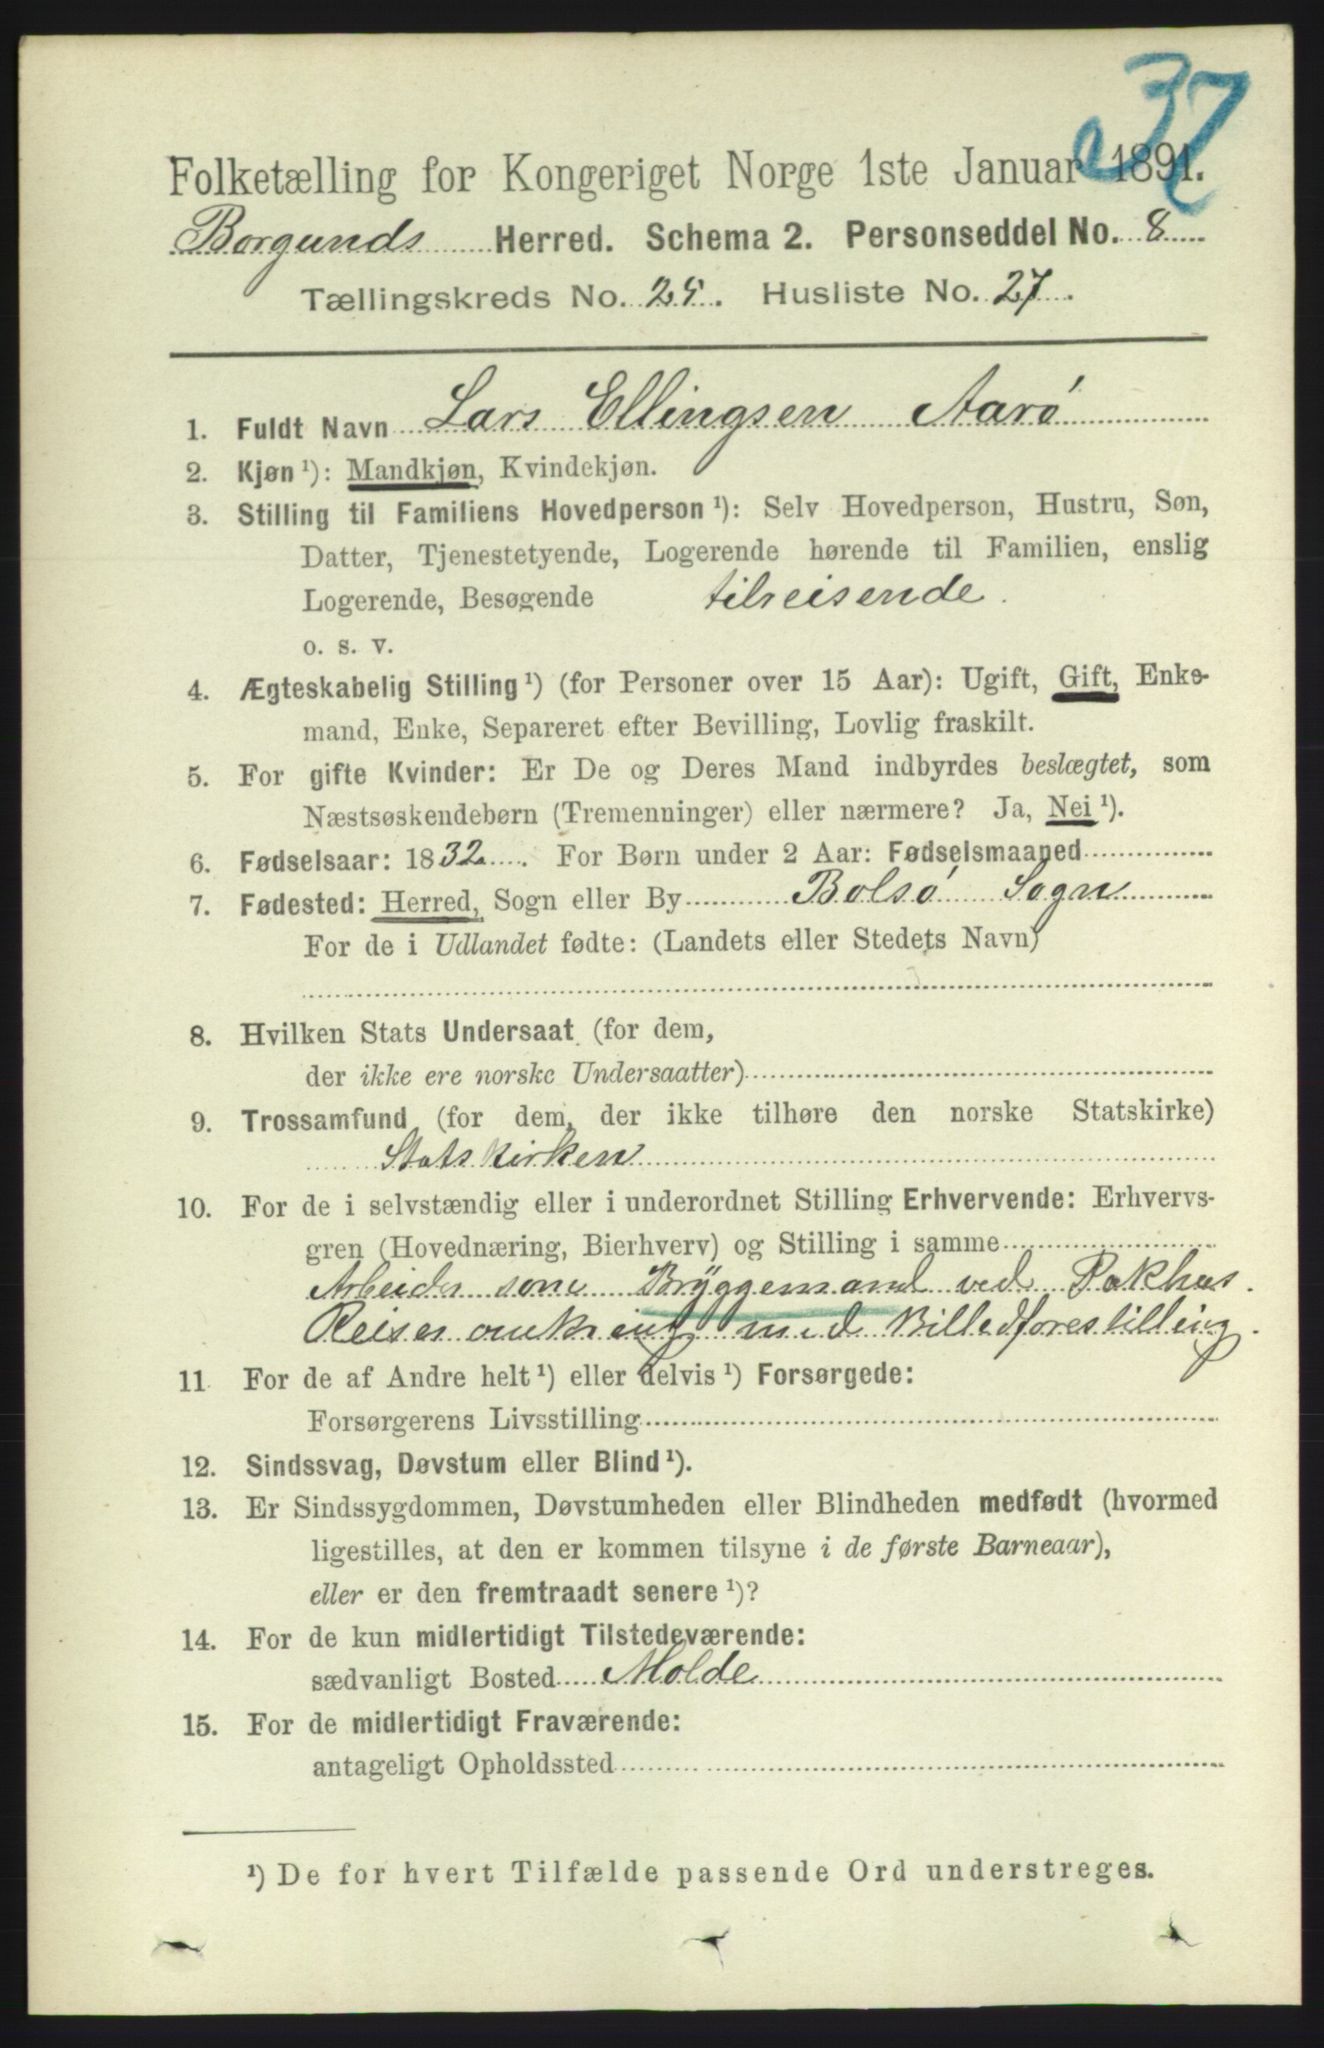 37
Folketælling for Kongeriget Norge 1ste Januar 1891.
Borgunds Herred. Schema 2. Personseddel No. 8
Tællingskreds No. 25. Husliste No. 27.
1. Fuldt Navn Lars Ellingsen Aarö
2. Kjøn ¹): Mandkjøn, Kvindekjøn.
3. Stilling til Familiens Hovedperson ¹): Selv Hovedperson, Hustru, Søn,
Datter, Tjenestetyende, Logerende hørende til Familien, enslig
Logerende, Besøgende tilreisende.
o. s. v.
4. Ægteskabelig Stilling ¹) (for Personer over 15 Aar): Ugift, Gift, Enke-
mand, Enke, Separeret efter Bevilling, Lovlig fraskilt.
5. For gifte Kvinder: Er De og Deres Mand indbyrdes beslægtet, som
Næstsøskendebørn (Tremenninger) eller nærmere? Ja, Nei ¹).
6. Fødselsaar: 1832. For Børn under 2 Aar: Fødselsmaaned
7. Fødested: Herred, Sogn eller By Bolsö Sogn
For de i Udlandet fødte: (Landets eller Stedets Navn)
8. Hvilken Stats Undersaat (for dem,
der ikke ere norske Undersaatter)
9. Trossamfund (for dem, der ikke tilhøre den norske Statskirke)
Statskirken
10. For de i selvstændig eller i underordnet Stilling Erhvervende: Erhvervs-
gren (Hovednæring, Bierhverv) og Stilling i samme
Arbeider som Bryggemand ved Pakhus.
Reiser omkring med Billedforestilling.
11 For de af Andre helt ¹) eller delvis ¹) Forsørgede:
Forsørgerens Livsstilling
12. Sindssvag, Døvstum eller Blind ¹).
13. Er Sindssygdommen, Døvstumheden eller Blindheden medfødt (hvormed
ligestilles, at den er kommen tilsyne i de første Barneaar),
eller er den fremtraadt senere ¹)?
14. For de kun midlertidigt Tilstedeværende:
sædvanligt Bosted Molde
15. For de midlertidigt Fraværende:
antageligt Opholdssted
¹) De for hvert Tilfælde passende Ord understreges.